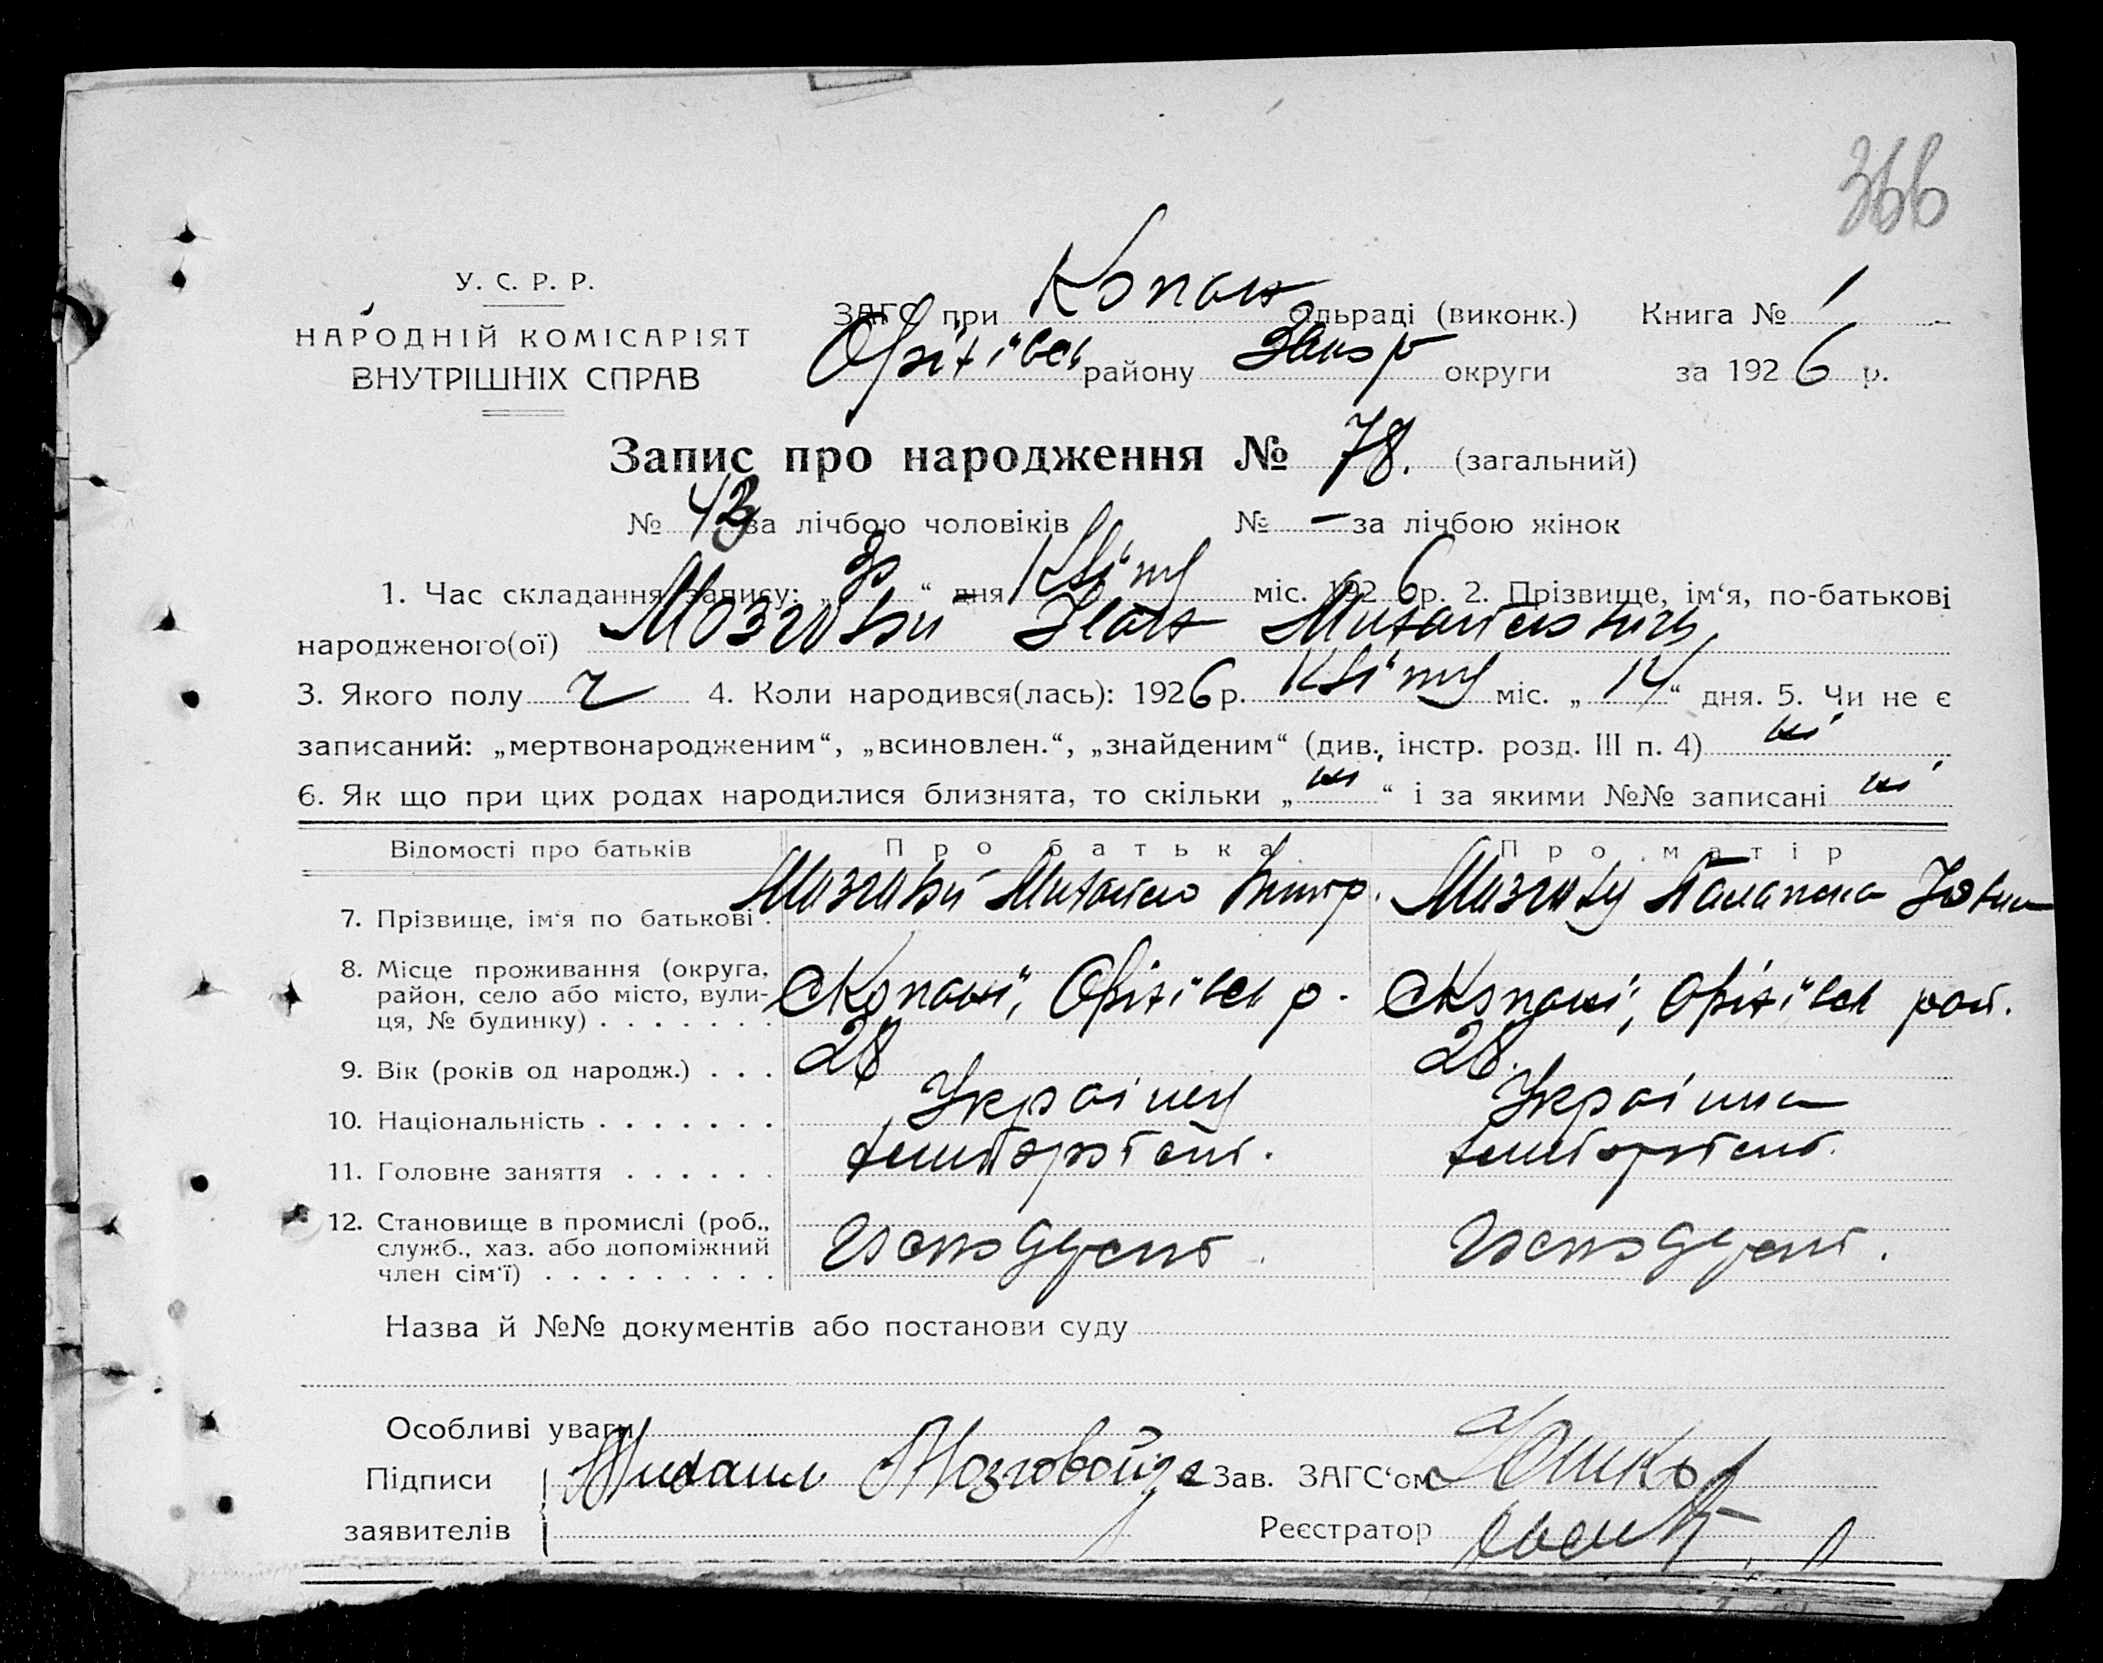 366
У. С. Р. Р.
НАРОДНІЙ КОМІСАРІЯТ
ВНУТРІШНІХ СПРАВ
ЗАГС при Копан ільраді (виконк.) Книга № 1
Оріхівськ району Запор округи за 1926 р.
Запис про народження № 78. (загальний)
№ 43 за лічбою чоловіків № — за лічбою жінок
1. Час складання запису: „ “ дня Квітня міс. 1926 р. 2. Прізвище, ім‘я, по-батькові
народженого(ої) Мозговий Іван Михайлович
3. Якого полу ч 4. Коли народився(лась): 1926 р. Квітня міс. „14“ дня. 5. Чи не є
записаний: „мертвонародженим“, „всиновлен.“, „знайденим“ (див. інстр. розд. III п. 4) ні
6. Як що при цих родах народилися близнята, то скільки „ні“ і за якими №№ записані ні
Відомості про батьків Про батька Про матір
7. Прізвище, ім‘я по батькові . Мозговий Михайло Мозгова
8. Місце проживання (округа,
район, село або місто, вули-
ця, № будинку) . . . . . . . с Копані, Оріхівськ р. с Копані, Оріхівськ рай.
9. Вік (років од народж.) . . . 28 28
10. Національність . . . . . . . Українец Українка
11. Головне заняття . . . . . . хлібороб хлібороб
12. Становище в промислі (роб.,
служб., хаз. або допоміжний
член сім‘ї) . . . . . . . . .
Назва й №№ документів або постанови суду
Особливі уваги
Підписи Михаил Мозговой Зав. ЗАГС‘ом
заявителів Реєстратор